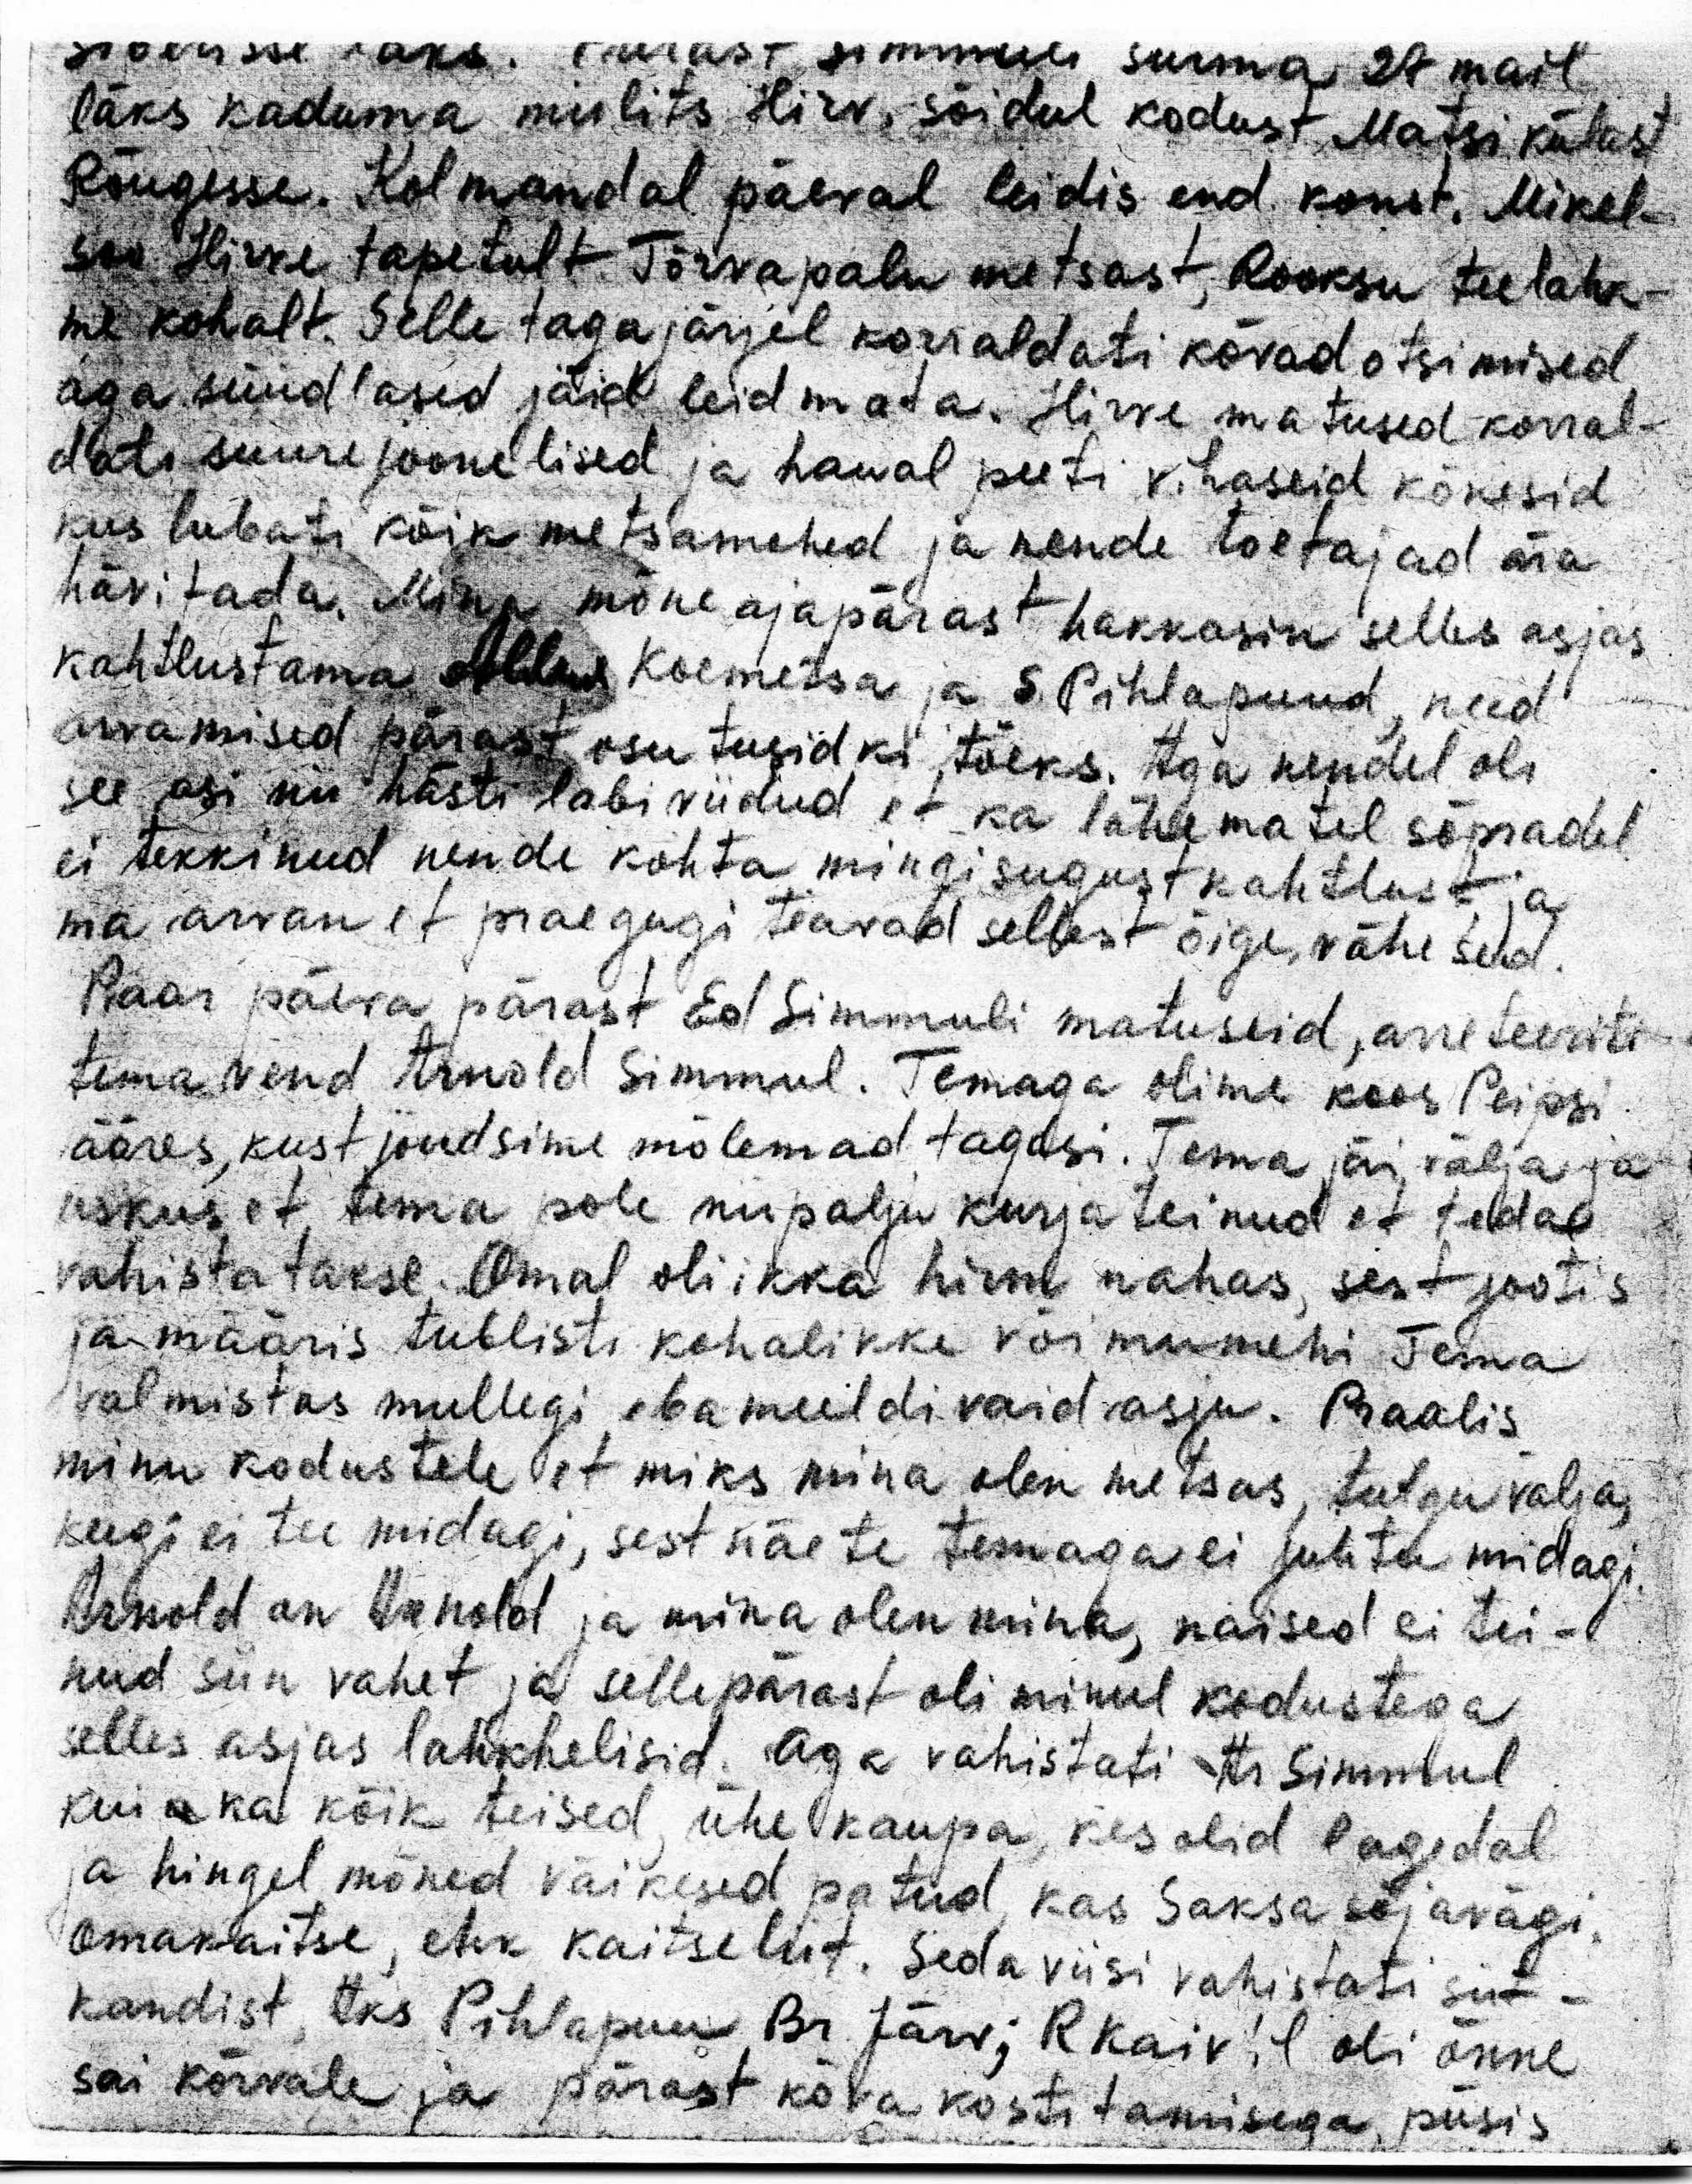 Siberisse läks. Pärast Simmuli surma 27 mail
läks kaduma miilits Hirv, sõidul kodust Matsi külast
Rõugesse. Kolmandal päeval leidis end. konst. Mikel-
soo Hirve tapetult Tõrvapalu metsast, Rooksu teelahk-
me kohalt. Selle tagajärjel korraldati kõvad otsimised
aga süüdlased jäid leidmata. Hirve matused korral-
dati suurejoonelised ja haual peeti vihaseid kõnesid
kus lubati kõik metsamehed ja nende toetajad ära
hävitada. Mina mõne ajapärast hakkasin selles asjas
kahtlustama Koemetsa ja S. Pihlapuud, need
arvamised pärast osutusidki tõeks. Aga nendel oli
see asi nii hästi läbiviidud et ka lähematel sõpradel
ei tekkinud nende kohta mingisugust kahtlust ja
ma arvan et praegugi teavad sellest õige vähesed.
Paar päeva pärast Ed Simmuli matuseid, arreteeriti
tema vend Arnold Simmul. Temaga olime koos Peipsi
ääres, kust jõudsime mõlemad tagasi. Tema jäi välja ja
uskus et tema pole niipalju kurja teinud et teda
vahistatakse. Omal oli ikka hirm nahas, sest jootis
ja määris tublisti kohalikke võimumehi Tema
valmistas mullegi ebameeldivaid asju. Praalis
minu kodustele et miks mina olen metsas, tulgu välja,
keegi ei tee midagi, sest näete temaga ei juhtu midagi.
Arnold on Arnold ja mina olen mina, naised ei tei-
nud siin vahet ja sellepärast oli minul kodustega
selles asjas lahkhelisid. Aga vahistati Ar Simmul
kui ka kõik teised, ühe kaupa, kes olid lagedal
ja hingel mõned väikesed patud, kas Saksa sõjavägi,
omakaitse, ehk kaitseliit. Seda viisi vahistati siit-
kandist, Aks Pihlapuu Br. Järv; R Kaiv'il oli õnne
sai kõrvale ja pärast kõva kostitamisega, püsis